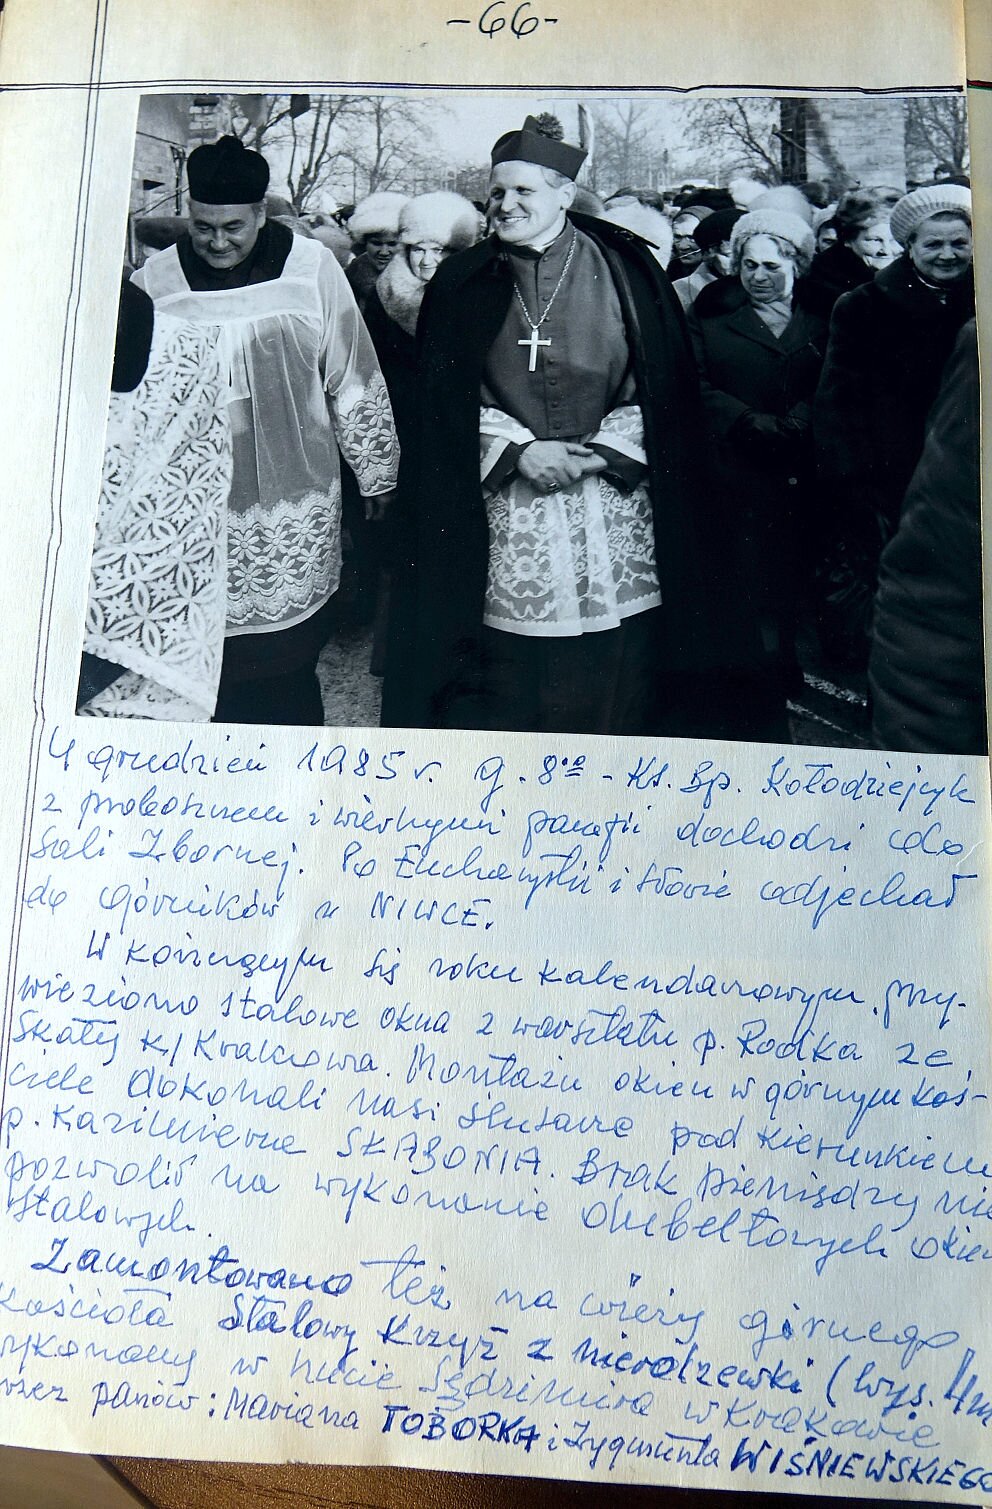 -66-
4 grudzień 1985 r. g. 8.00 - Ks. Bp. Kołodziejczyk
z proboszczem i wiernymi parafii dochodzi do
Sali Zbornej. Po Eucharystii i słowie odjechał
do górników w NIWCE.
W kończącym się roku kalendarzowym przy-
wieziono stalowe okna z warsztatu p. Rodka ze
Skały k/Krakowa. Montażu okien w górnym koś-
ciele dokonali nasi ślusarze pod kierunkiem
p. Kazimierza SKABONIA. Brak pieniędzy nie
pozwolił na wykonanie okien
stalowych.
Zamontowano też na wieży górnego
kościoła stalowy krzyż z nierdzewki (wys. 4m
wykonany w hucie Sędzimira w Krakowie
przez panów: Mariana TOBORKA i Zygmunta WIŚNIEWSKIEGO